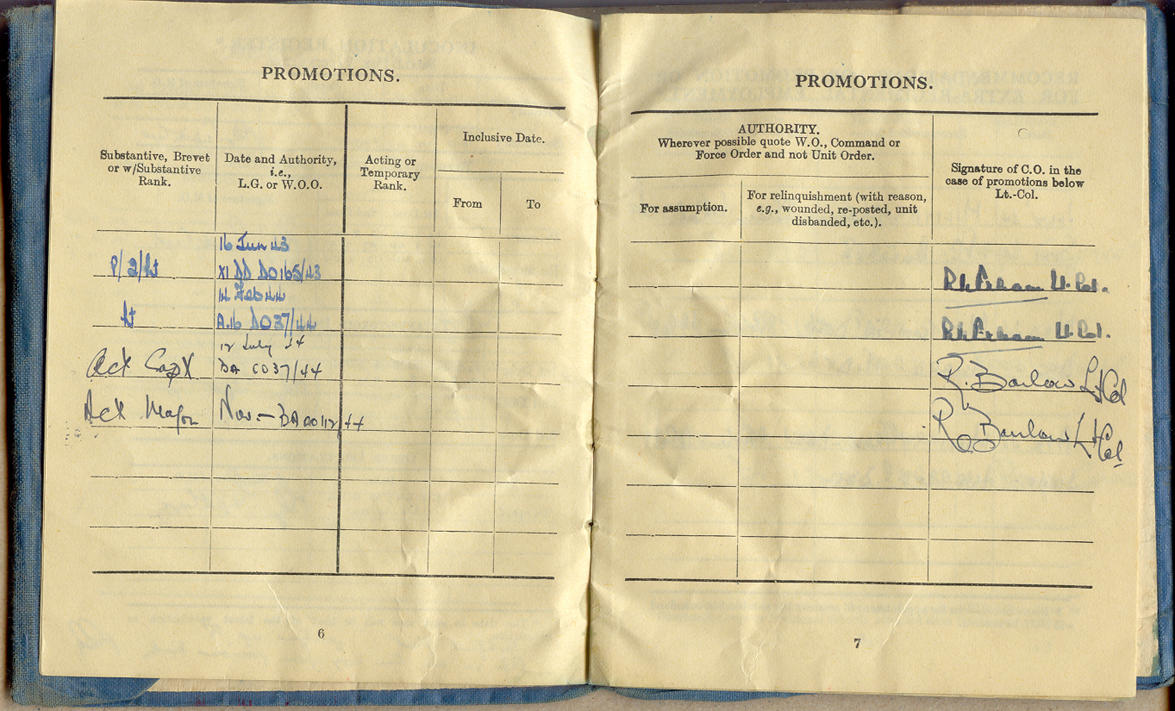 PROMOTIONS.
Substantive, Brevet
or w/Substantive
Rank.
Date and Authority,
i.e.,
L.G. or W.O.O.
Acting or
Temporary
Rank.
Inclusive Date.
From
To
16 Jun 43
P/2/Lt
XI DD DO165/43
14 Feb 44
Lt
A.16 DO37/44
12 July 44
Act Capt
DA CO37/44
Act Major
Nov.
6
PROMOTIONS.
AUTHORITY.
Wherever possible quote W.O., Command or
Force Order and not Unit Order.
For assumption.
For relinquishment (with reason,
e.g., wounded, re-posted, unit
disbanded, etc.).
Signature of C.O. in the
case of promotions below
Lt.-Col.
Lt. Col.
Lt. Col.
R. Barlow Lt Col
R. Barlow Lt Col
7